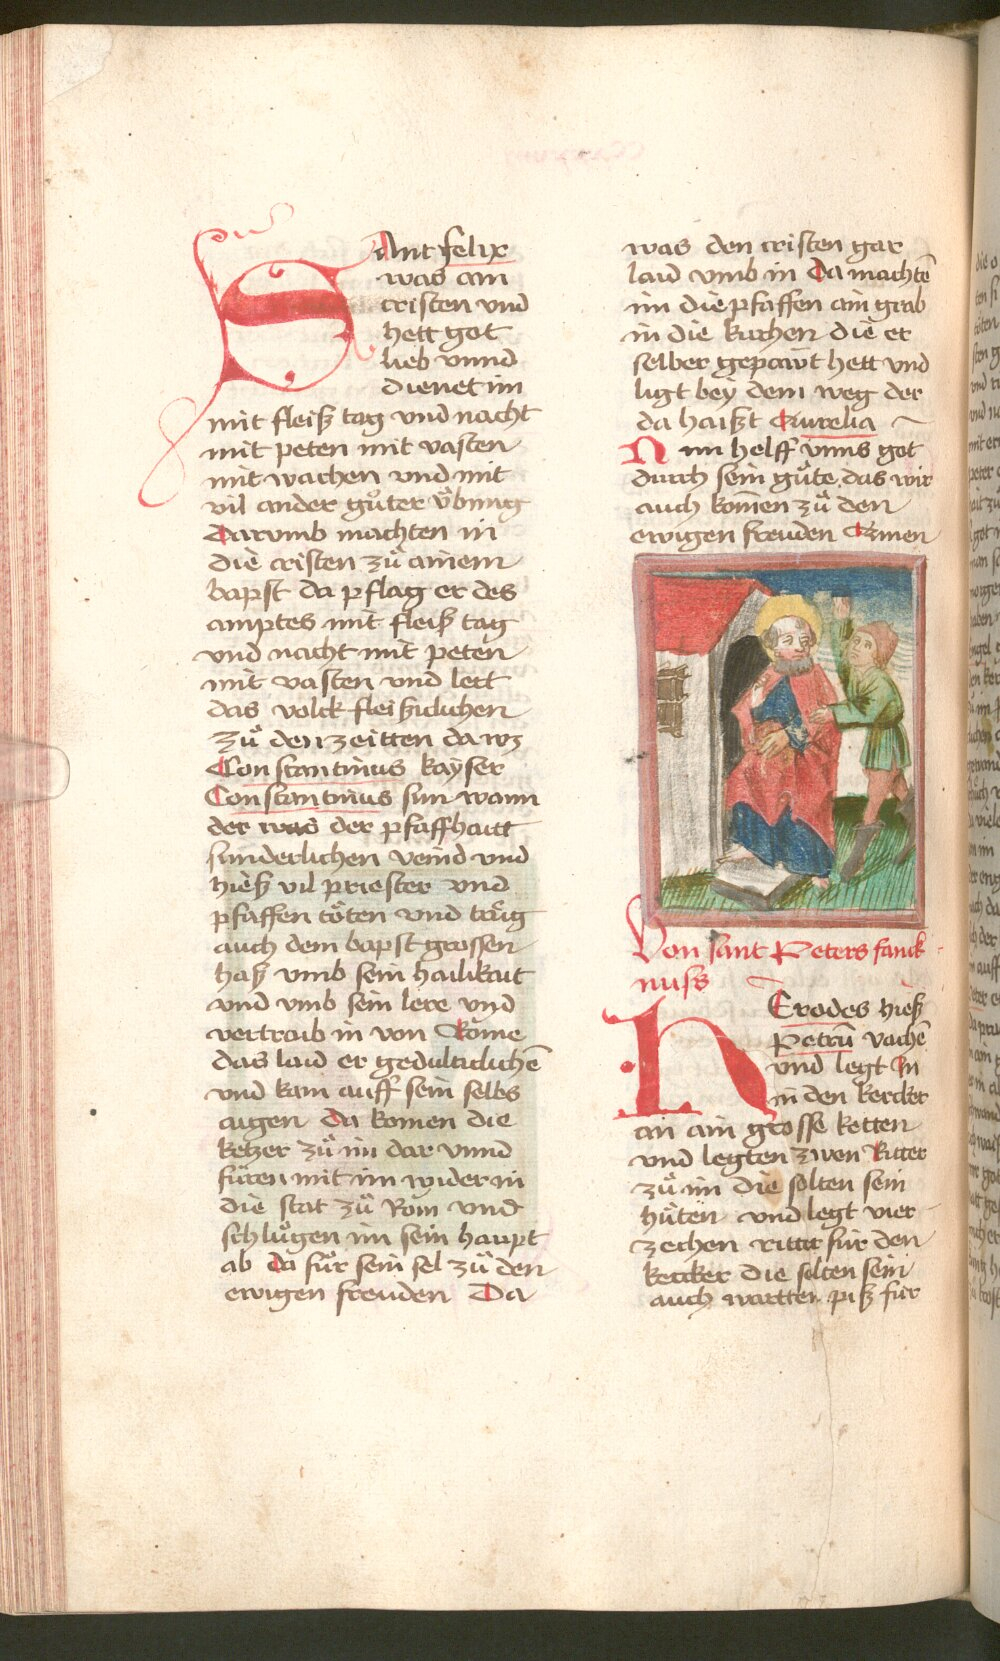 SAnt felix
was ain
cristen vnd
hett got
lieb vnnd
dienet im
mit fleiß tag vnd nacht
mit peten mit vasten
mit wachen vnd mit
vil ander gůter v̈bung
Darvmb machten in
die cristen zů ainem
bapst da pflag er des
amptes mit fleiß tag
vnd nacht mit peten
mit vasten vnd lert
das volck fleißiclichen
Zů den zeitten da wz
Constantinus kayser
Constantinus sun wann
der was der pfaffhaitt
sunderlichen veind vnd
hieß vil priester vnd
pfaffen töten vnd trůg
auch dem bapst grossen
haß vmb sein hailikait
vnd vmb sein lere vnd
vertraib in von Rome
das laid er gedulticlichē
vnd kam auff sein selbs
aigen Da komen die
ketzer zů im dar vnnd
fůren mit im wider in
die stat zů Rom vnd
schlůgen im sein haupt
ab Da fůr sein sel zů den
ewigen freuden Da
was den cristen gar
laid vmb in Da machtē
im die pfaffen ain grab
in die kirchen die er
selber gepawt hett vnd
ligt bey dem weg der
da haißt Aurelia
Nun helff vnns got
durch sein gůte das wir
auch komen zů den
ewigen freuden Amen
Von sant Peters fanck
nuss
HErodes hieß
Petrū vachē
vnd legt in
in den kercker
an ain grosse ketten
vnd legten zwen Ritter
zů im die solten sein
hüten vnd legt vier
zechen ritter für den
kercker die solten sein
auch wartten piß für